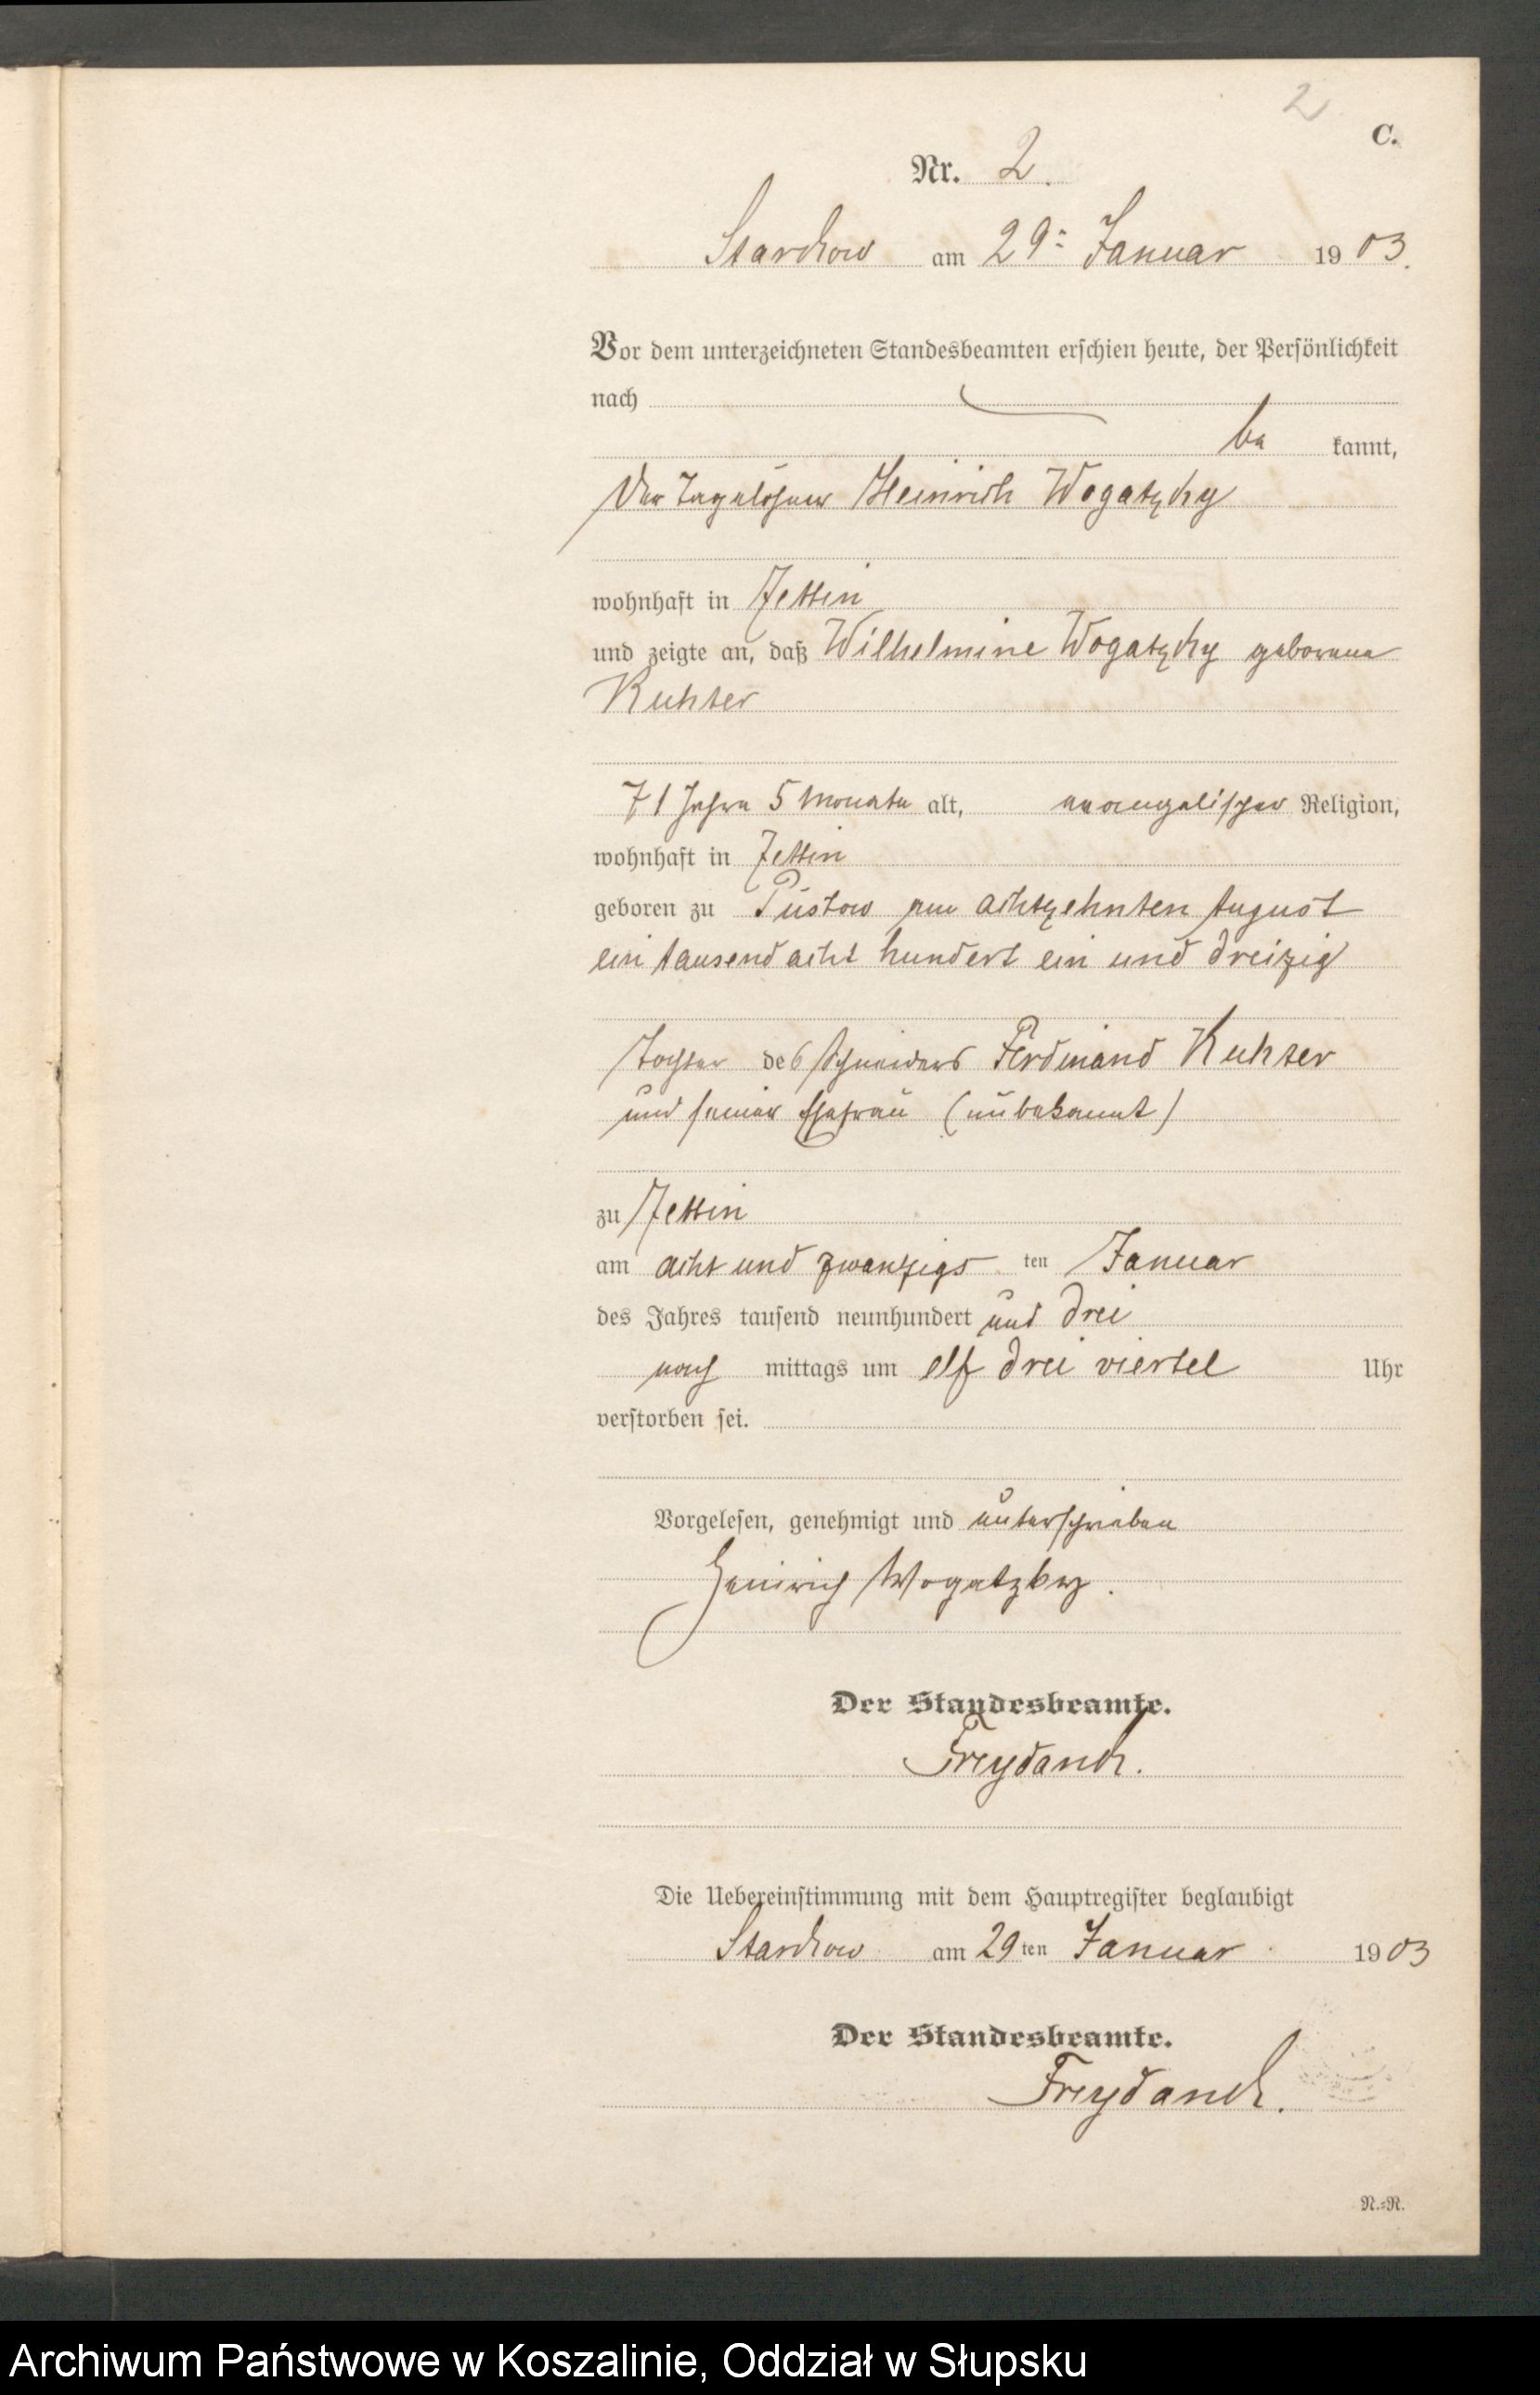 2
C.
Nr. 2.
Starckow am 29ᵗ Januar 1903.
Vor dem unterzeichneten Standesbeamten erschien heute, der Persönlichkeit
nach
be kannt,
der Tagelöhner Heinrich Wogatzky
wohnhaft in Jettin
und zeigte an, daß Wilhelmine Wogatzky geborene
Kuhter
71 Jahre 5 Monate alt, evangelischer Religion,
wohnhaft in Jettin
geboren zu Pustow am achtzehnten August
ein tausend acht hundert ein und dreizig
Tochter des Schneiders Ferdinand Kuhter
und seiner Ehefrau (unbekannt)
zu Jettin
am acht und zwanzigs ten Januar
des Jahres tausend neunhundert und drei
nach mittags um elf drei viertel Uhr
verstorben sei.
Vorgelesen, genehmigt und unterschrieben
Heinrich Wogatzky.
Der Standesbeamte.
Freydanck.
Die Uebereinstimmung mit dem Hauptregister beglaubigt
Starckow am 29 ten Januar 1903
Der Standesbeamte.
Freydanck.
N.=R.
Archiwum Państwowe w Koszalinie, Oddział w Słupsku